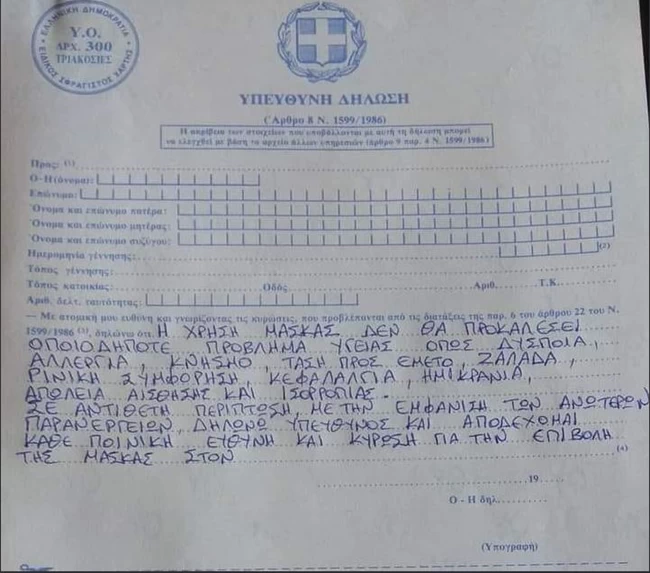 ΕΛΛΗΝΙΚΗ ΔΗΜΟΚΡΑΤΙΑ
Υ.Ο.
ΔΡΧ. 300
ΤΡΙΑΚΟΣΙΕΣ
ΕΙΔΙΚΟΣ ΣΦΡΑΓΙΣΤΟΣ ΧΑΡΤΗΣ
ΥΠΕΥΘΥΝΗ ΔΗΛΩΣΗ
(Άρθρο 8 Ν. 1599/1986)
Η ακρίβεια των στοιχείων που υποβάλλονται με αυτή τη δήλωση μπορεί
να ελεγχθεί με βάση το αρχείο άλλων υπηρεσιών (άρθρο 9 παρ. 4 Ν. 1599/1986)
Προς: (1)
Ο-Η (όνομα):
Επώνυμο:
Όνομα και επώνυμο πατέρα:
Όνομα και επώνυμο μητέρας:
Όνομα και επώνυμο συζύγου:
Ημερομηνία γέννησης: (2)
Τόπος γέννησης:
Τόπος κατοικίας: Οδός Αριθ. Τ.Κ.
Αριθ. δελτ. ταυτότητας:
— Με ατομική μου ευθύνη και γνωρίζοντας τις κυρώσεις, που προβλέπονται από τις διατάξεις της παρ. 6 του άρθρου 22 του Ν.
1599/1986 (3), δηλώνω ότι: Η ΧΡΗΣΗ ΜΑΣΚΑΣ ΔΕΝ ΘΑ ΠΡΟΚΑΛΕΣΕΙ
ΟΠΟΙΟΔΗΠΟΤΕ ΠΡΟΒΛΗΜΑ ΥΓΕΙΑΣ ΟΠΩΣ ΔΥΣΠΟΙΑ,
ΑΛΛΕΡΓΙΑ, ΚΝΗΣΜΟ, ΤΑΣΗ ΠΡΟΣ ΕΜΕΤΟ, ΖΑΛΑΔΑ,
ΡΙΝΙΚΗ ΣΥΜΦΟΡΗΣΗ, ΚΕΦΑΛΑΛΓΙΑ, ΗΜΙΚΡΑΝΙΑ,
ΑΠΩΛΕΙΑ ΑΙΣΘΗΣΗΣ ΚΑΙ ΙΣΟΡΡΟΠΙΑΣ.
ΣΕ ΑΝΤΙΘΕΤΗ ΠΕΡΙΠΤΩΣΗ, ΜΕ ΤΗΝ ΕΜΦΑΝΙΣΗ ΤΩΝ ΑΝΩΤΕΡΩΝ
ΠΑΡΑΝΕΡΓΕΙΩΝ, ΔΗΛΩΝΩ ΥΠΕΥΘΥΝΟΣ ΚΑΙ ΑΠΟΔΕΧΟΜΑΙ
ΚΑΘΕ ΠΟΙΝΙΚΗ ΕΥΘΥΝΗ ΚΑΙ ΚΥΡΩΣΗ ΓΙΑ ΤΗΝ ΕΠΙΒΟΛΗ
ΤΗΣ ΜΑΣΚΑΣ ΣΤΟΝ (4)
19
Ο - Η δηλ.
(Υπογραφή)